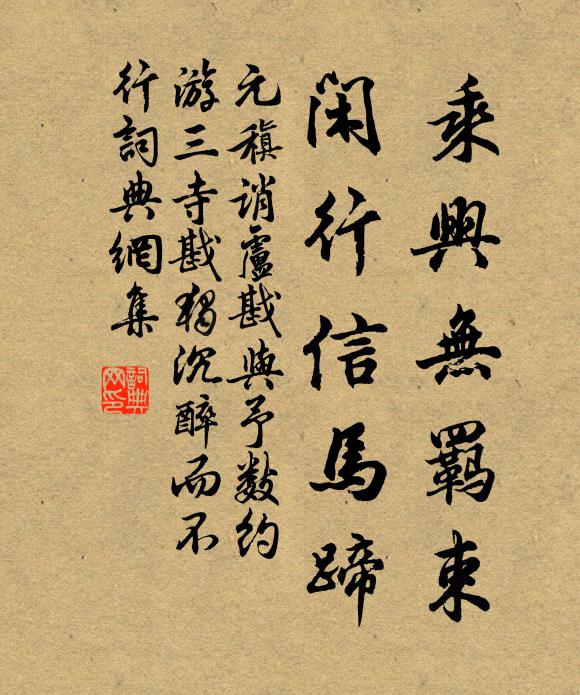 乘興無羈束
閑行信馬蹄
元稹誚盧戡與予數約
游三寺戡獨沉醉而不
行詞典網集
詞典
网印